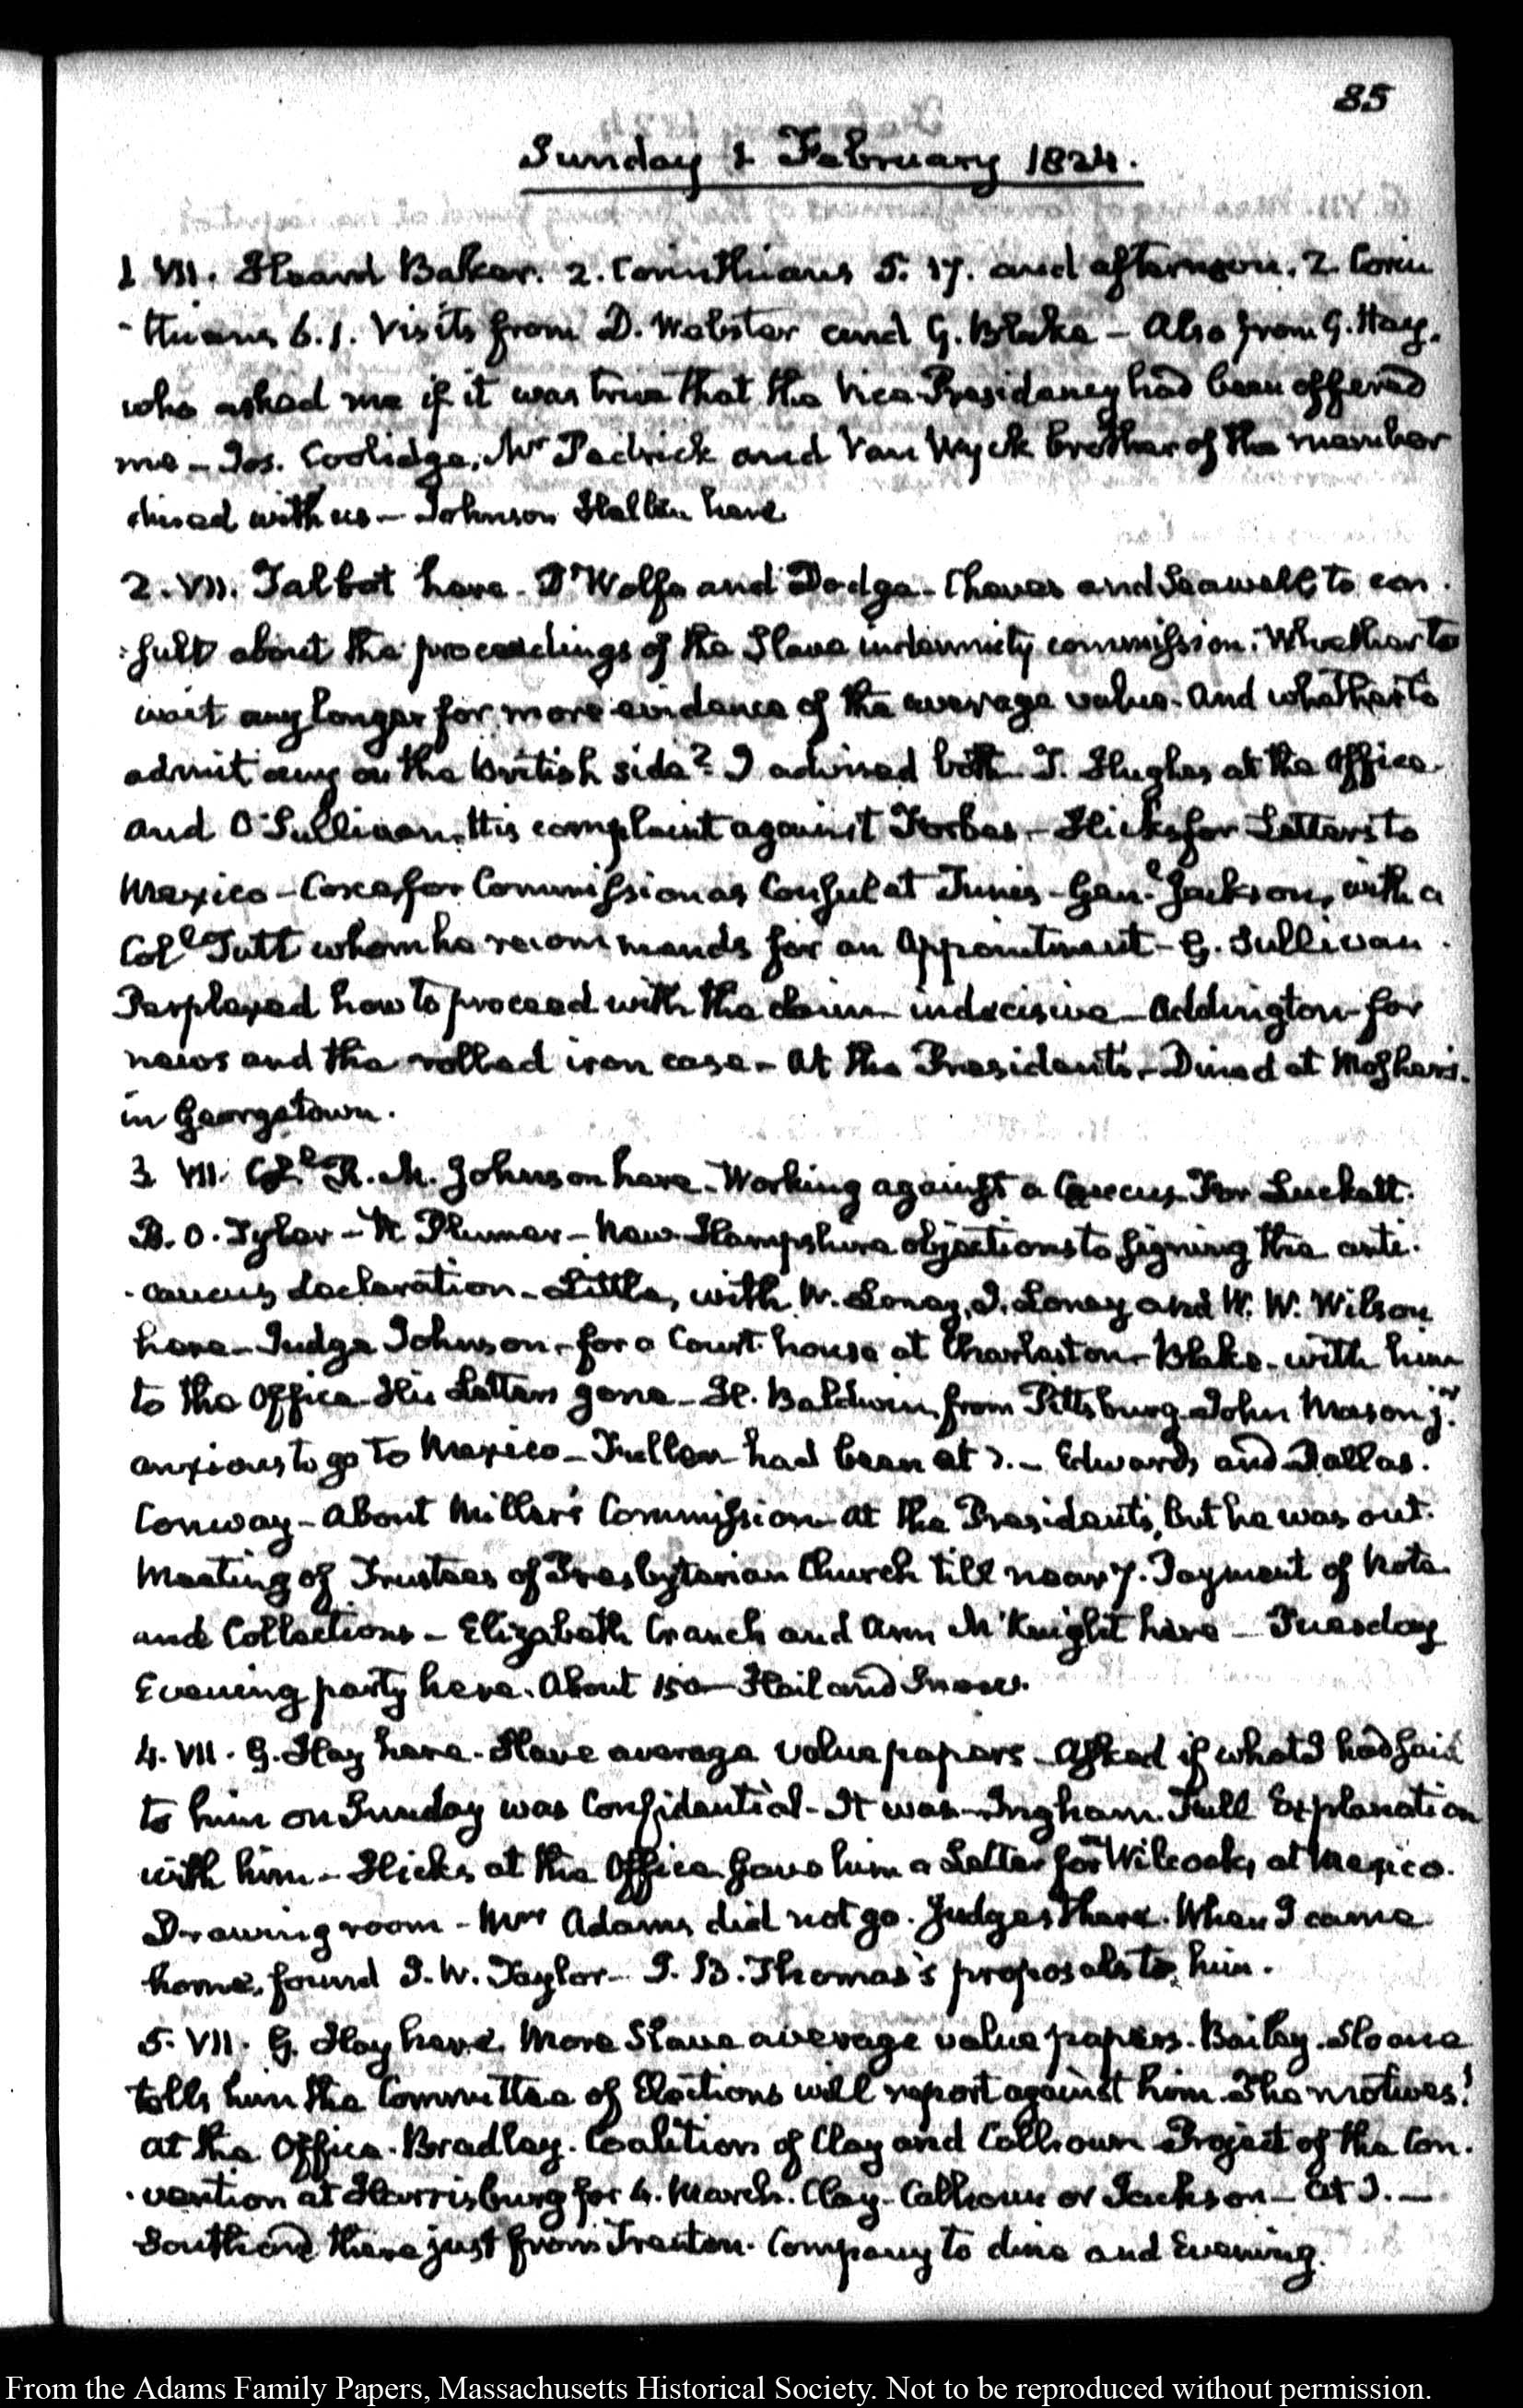 85
Sunday 1 February 1824.
1 VII. Heard Baker. 2. Corinthians 5. 17. and afternoon. 2. Corin
-thians 6. 1. Visits from D. Webster and G. Blake – Also from G. Hay,
who asked me if it was true that the Vice Presidency had been offered
me – Jos. Coolidge, Mr Pedrick and Van Wyck brother of the member
dined with us – Johnson Hellen here
2. VII. Talbot here – D'Wolfe and Dodge – Cheves and Seawell to con
:sult about the proceedings of the Slave indemnity commission. Whether to
wait any longer for more evidence of the average value – And whether to
admit any on the British side? I advised both – Hughes at the Office
and O'Sullivan. His complaint against Forbes – Hicks for Letters to
Mexico – Coxe for Commission as Consul at Tunis – Genl. Jackson, with a
Coll Tutt whom he recommends for an Appointment – G. Sullivan
Perplexed how to proceed with the claim – indecisive – Addington for
news and the rolled iron case – At the President's – Dined at Mosher's.
in Georgetown.
3 VII. Coll. R. M. Johnson here – Working against a Caucus – For Luckett.
B. O. Tyler – W Plumer – New Hampshire objections to signing the anti
-caucus declaration – Little, with W. Loney, J. Loney and W. W. Wilson
here – Judge Johnson – for a Court house at Charleston – Blake – with him
to the Office – His Letters gone – H. Baldwin from Pittsburg – John Mason jr.
anxious to go to Mexico – Fuller had been at – Edwards and Dallas.
Conway – About Miller's Commission – At the President's, but he was out.
Meeting of Trustees of Presbyterian Church till near 7. Payment of Note
and Collections – Elizabeth Cranch and Ann M'Knight here – Tuesday
Evening party here. About 150 – Hail and Snow.
4. VII. G. Hay here – Slave average value papers – Asked if what I had said
to him on Sunday was Confidential – It was – Ingham. Full Explanation
with him – Hicks at the Office. Gave him a Letter for Wilcocks at Mexico.
Drawing room – Mrs Adams did not go. Judges there. When I came
home, found J. W. Taylor – J. B. Thomas's proposals to him.
5. VII. G. Hay here. More Slave average value papers. Bailey. Sloane
tells him the Committee of Elections will report against him. The motives!
At the Office. Bradley. Coalition of Clay and Calhoun – Project of the Con
-vention at Harrisburg for 4. March. Clay – Calhoun or Jackson – At
Southard there just from Trenton. Company to dine and Evening.
From the Adams Family Papers, Massachusetts Historical Society. Not to be reproduced without permission.